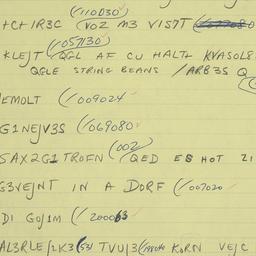 (/110D30)
+C+1R3C (VOZ M3 V1S7T
(/057130)
KLEJT (QGL AF CU HALTL KVASOL8
QGLE STRING BEANS /ARB3S Q
EMOLT (/009024
G1NEJV3S (/069080
(002/
SAX2G1TROFN (QED ES HOT 21
G3VEJNT IN A DORF (/007020
DI GOJ1M (/200063
AL3RLEJ2K3 TVUJ3 KORN VEJC